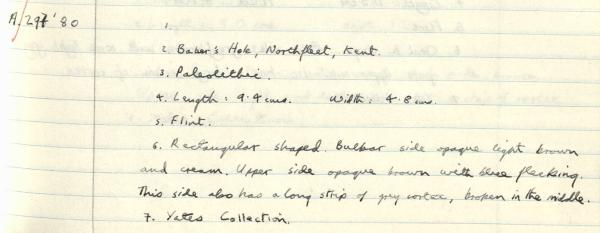 A. 297 '80
1.
2. Baker's Hole, Northfleet, Kent.
3. Paleolithic.
4. Length: 9.4 cms. Width: 4.8 cms.
5. Flint.
6. Rectangular shaped. Bulbar side opaque light brown
and cream. Upper side opaque brown with blue flecking.
This side also has a long strip of grey cortex, broken in the middle.
7. Yates Collection.